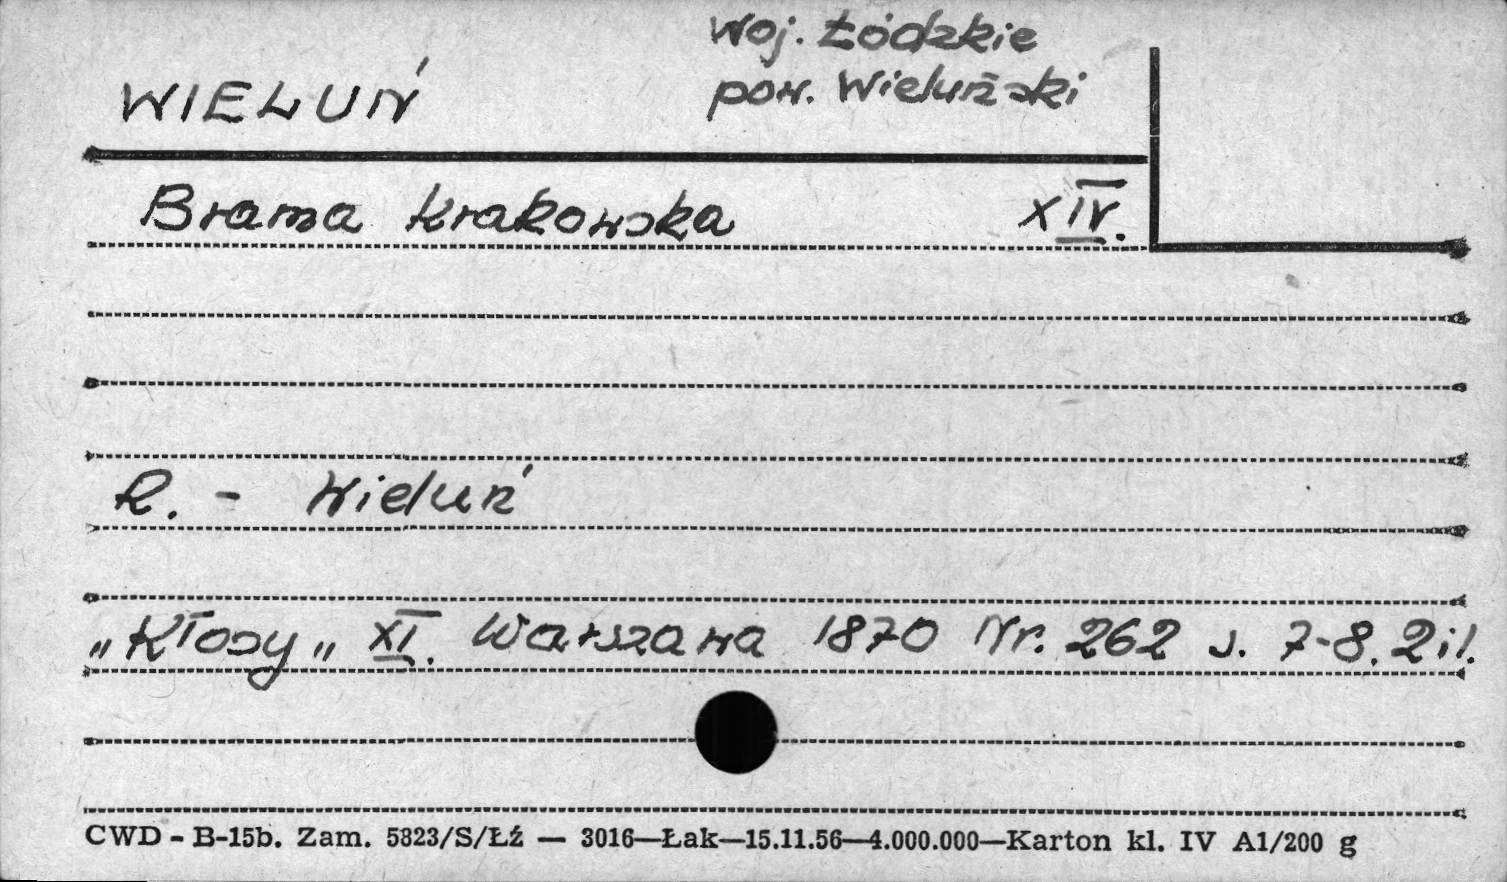 woj. Łódzkie
WIELUŃ pow. Wieluński
Brama Krakowska XIV.
R. - Wieluń
„Kłosy„ XI. Warszawa 1870 Nr. 262 s. 7-8. 2 il.
CWD - B-15b. Zam. 5823/S/Łź — 3016—Łak—15.11.56—4.000.000—Karton kl. IV A1/200 g